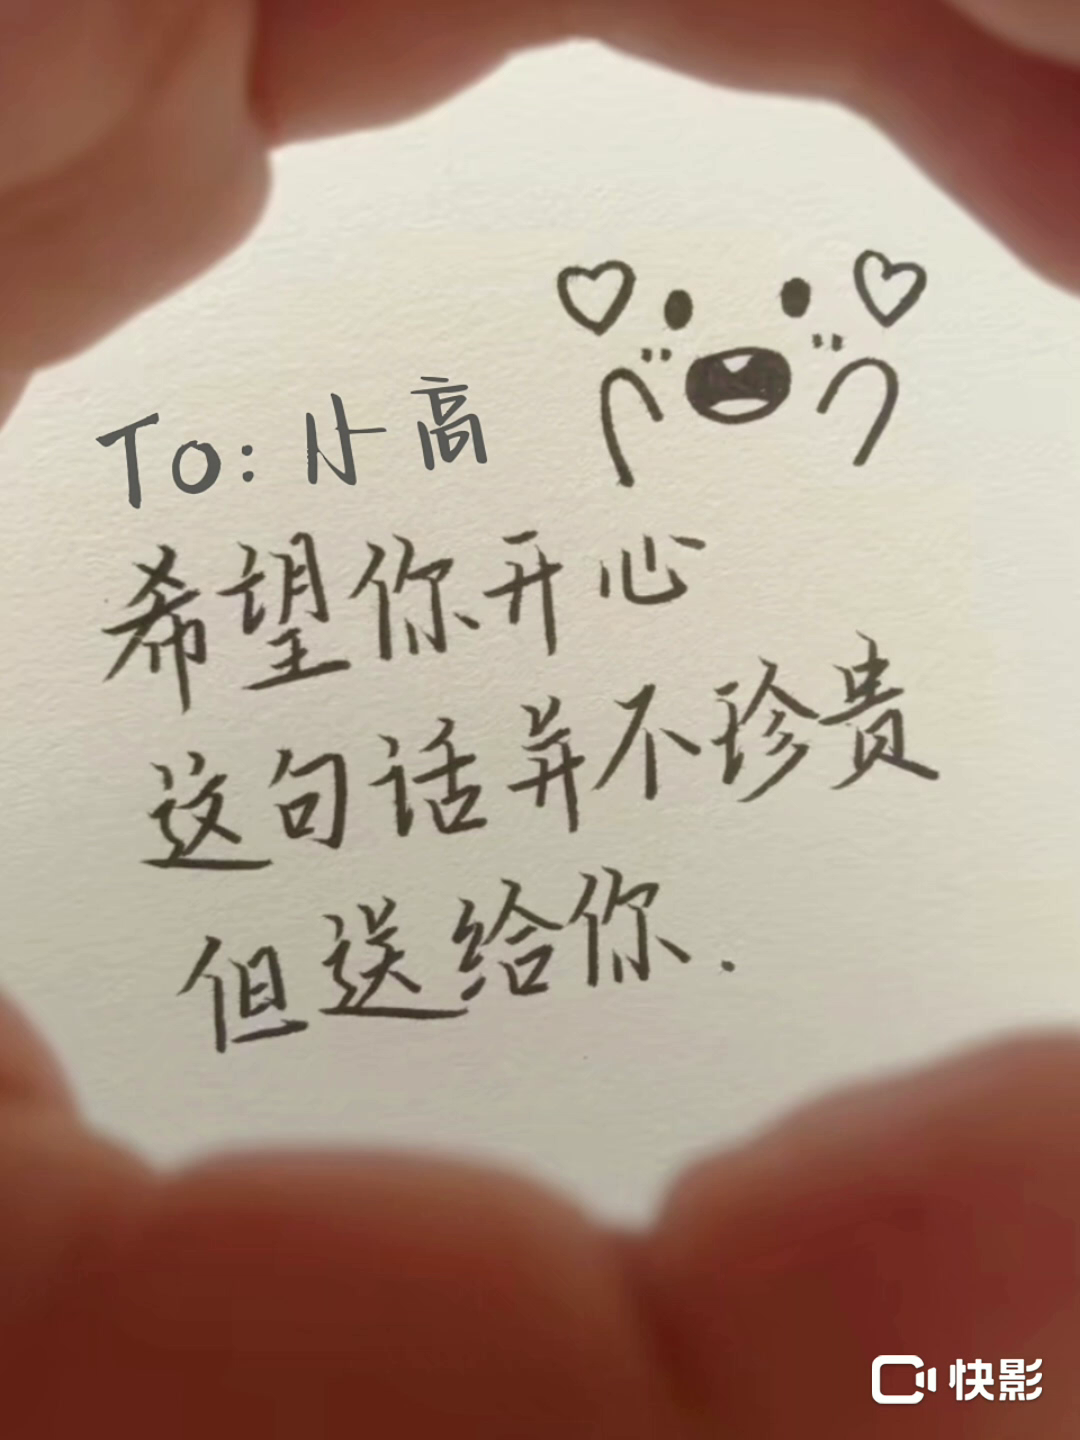 To: 小高
希望你开心
这句话并不珍贵
但送给你.
快影